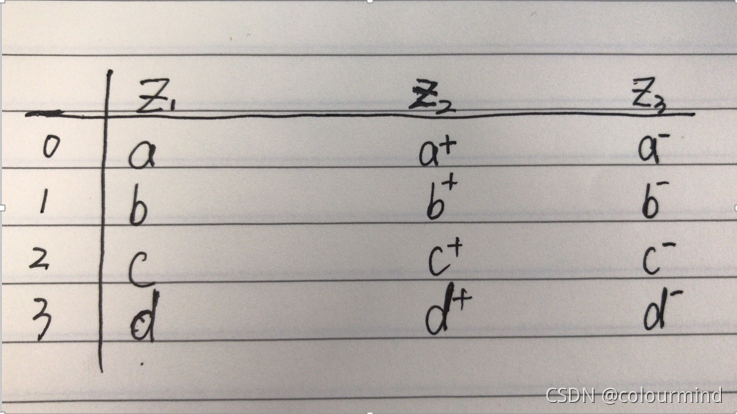 Z₁ Z₂ Z₃
0 a a⁺ a⁻
1 b b⁺ b⁻
2 c c⁺ c⁻
3 d d⁺ d⁻
CSDN @colourmind